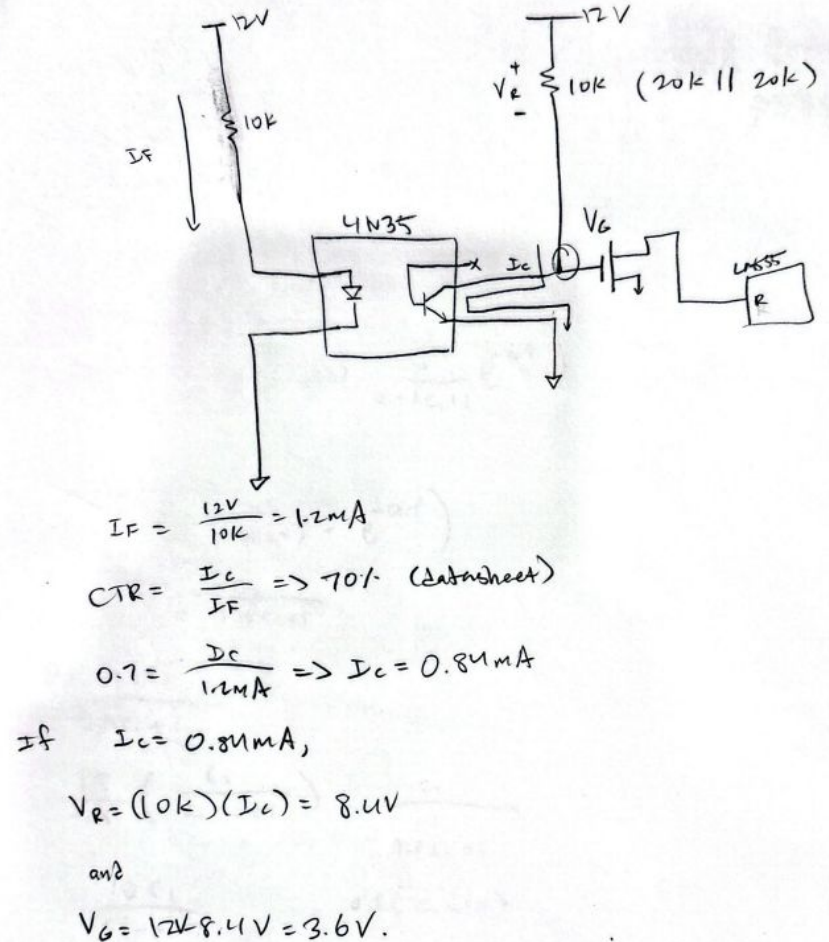 12V
12V
VR + - 10k (20k || 20k)
10k
IF
4N35
VG
x Ic
LM555
R
IF = 12V / 10k = 1.2mA
CTR = Ic / IF => 70% (datasheet)
0.7 = Ic / 1.2mA => Ic = 0.84mA
If Ic = 0.84mA,
VR = (10k)(Ic) = 8.4V
and
VG = 12V-8.4V = 3.6V.